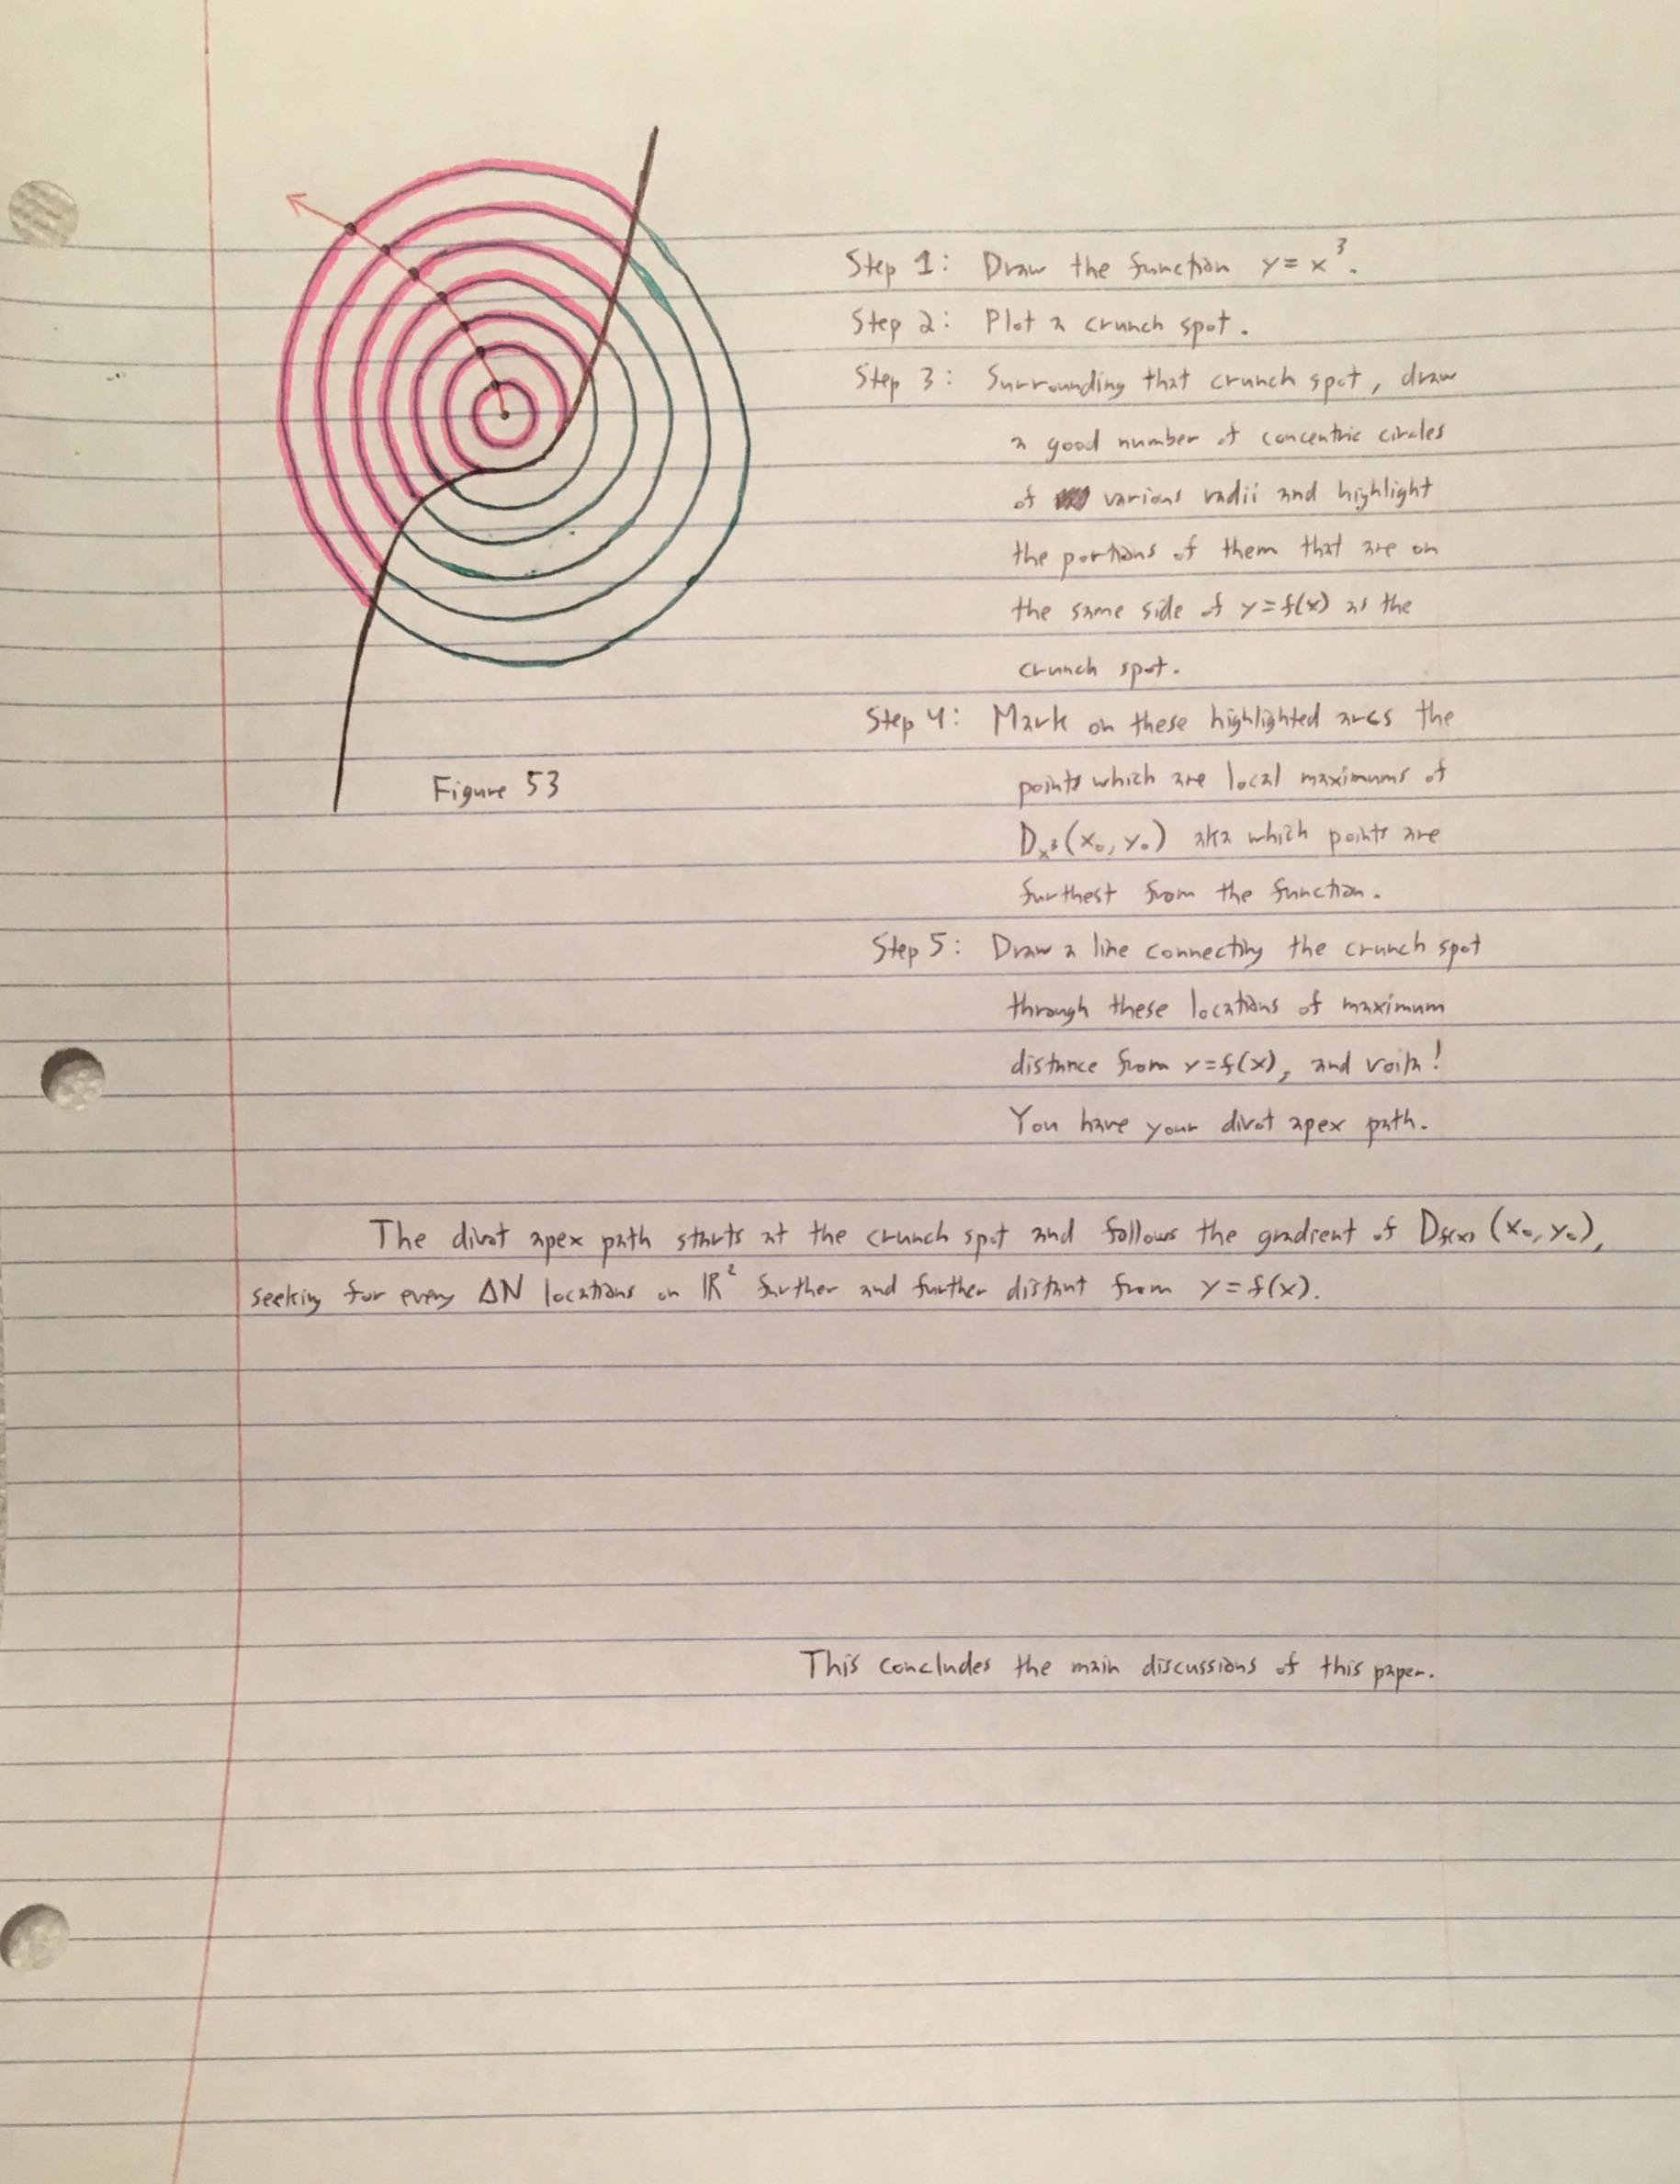 Step 1: Draw the function y = x³.
Step 2: Plot a crunch spot.
Step 3: Surrounding that crunch spot, draw
a good number of concentric circles
of various radii and highlight
the portions of them that are on
the same side of y=f(x) as the
crunch spot.
Step 4: Mark on these highlighted arcs the
points which are local maximums of
D_x³(x₀, y₀) aka which points are
furthest from the function.
Figure 53
Step 5: Draw a line connecting the crunch spot
through these locations of maximum
distance from y=f(x), and voila!
You have your divot apex path.
The divot apex path starts at the crunch spot and follows the gradient of D_f(x) (x₀, y₀),
seeking for every ΔN locations on ℝ² further and further distant from y = f(x).
This concludes the main discussions of this paper.